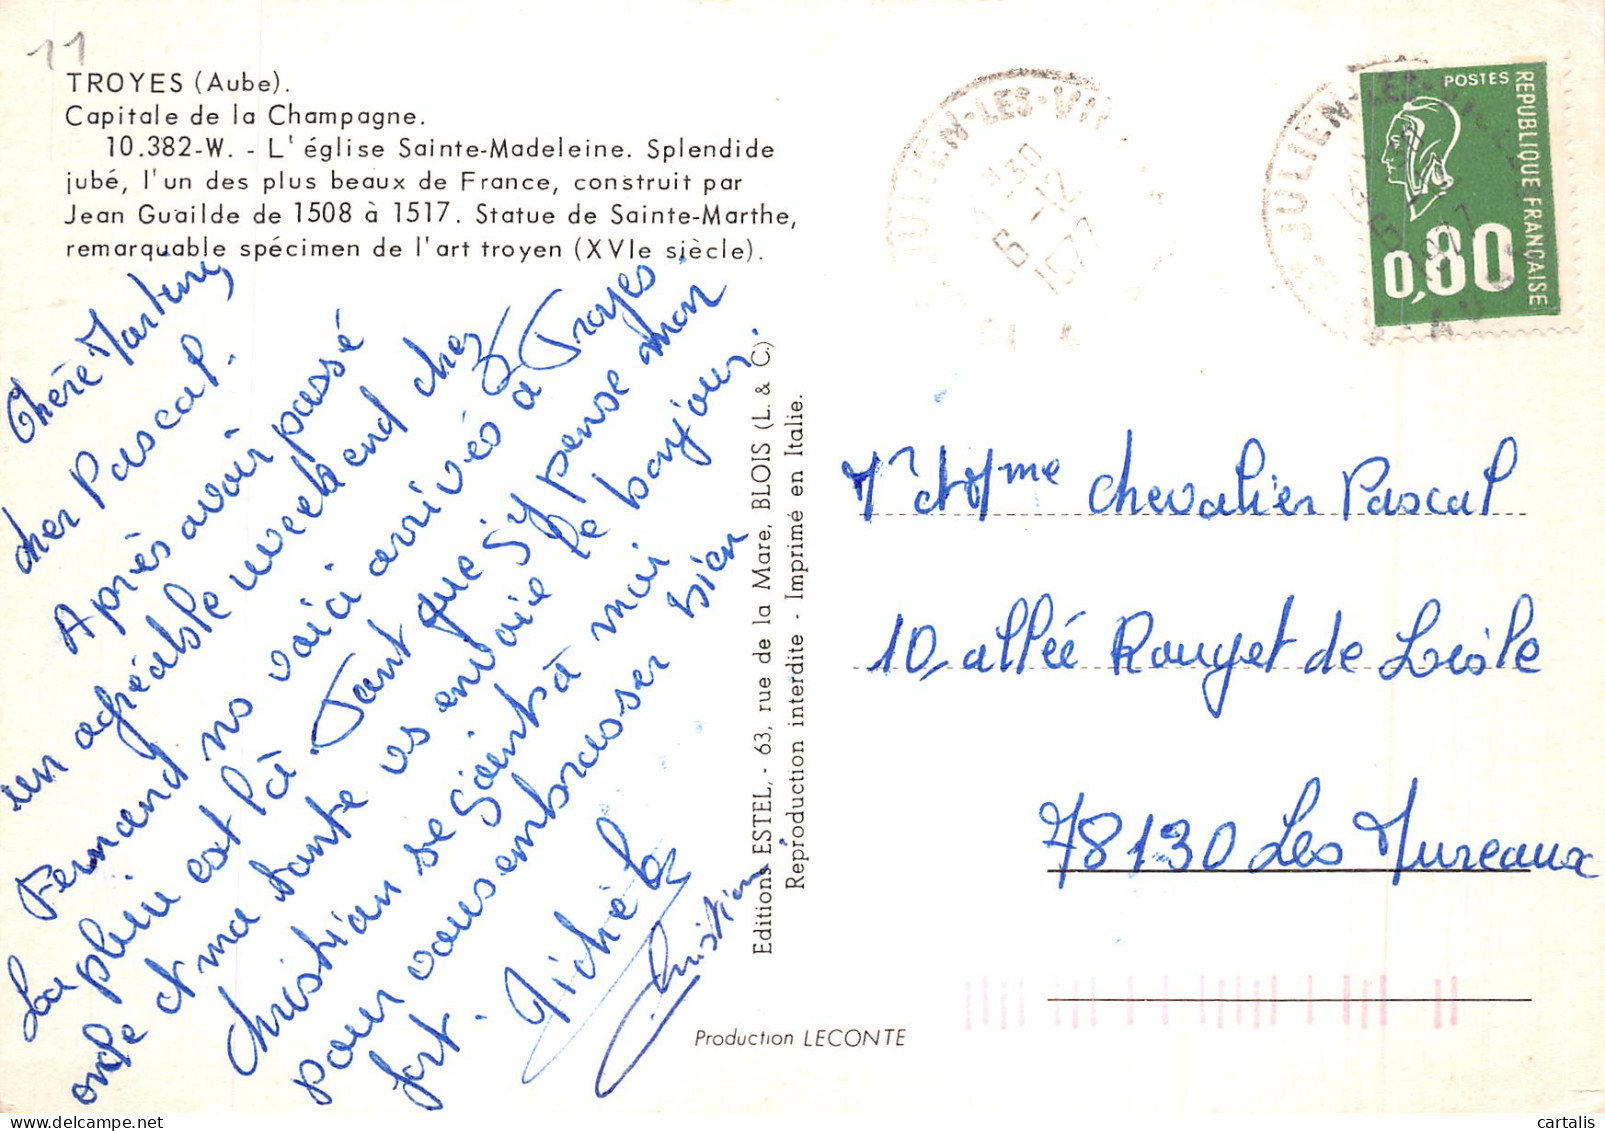 11
TROYES (Aube).
Capitale de la Champagne.
10.382-W. - L'église Sainte-Madeleine. Splendide
jubé, l'un des plus beaux de France, construit par
Jean Guailde de 1508 à 1517. Statue de Sainte-Marthe,
remarquable spécimen de l'art troyen (XVIe siècle).
Chère Martine,
cher Pascal.
Après avoir passé
un agréable week end chez
Fernand ns voici arrivés à Troyes.
La pluie est là. Tant que j'y pense mon
oncle et ma tante vs envoie le bonjour.
Christian se joint à moi
pour vous embrasser bien
fort. Michèle
Christian
Editions ESTEL, - 63, rue de la Mare, BLOIS (L. & C)
Reproduction interdite - Imprimé en Italie.
Production LECONTE
JULIEN-LES-VIL
6-12
1977
JULIEN-LES-VILLE
1977
AUBE
POSTES
REPUBLIQUE FRANÇAISE
0,80
Mr et Mme Chevalier Pascal
10, allée Rouget de Lisle
78130 Les Mureaux
cartalis